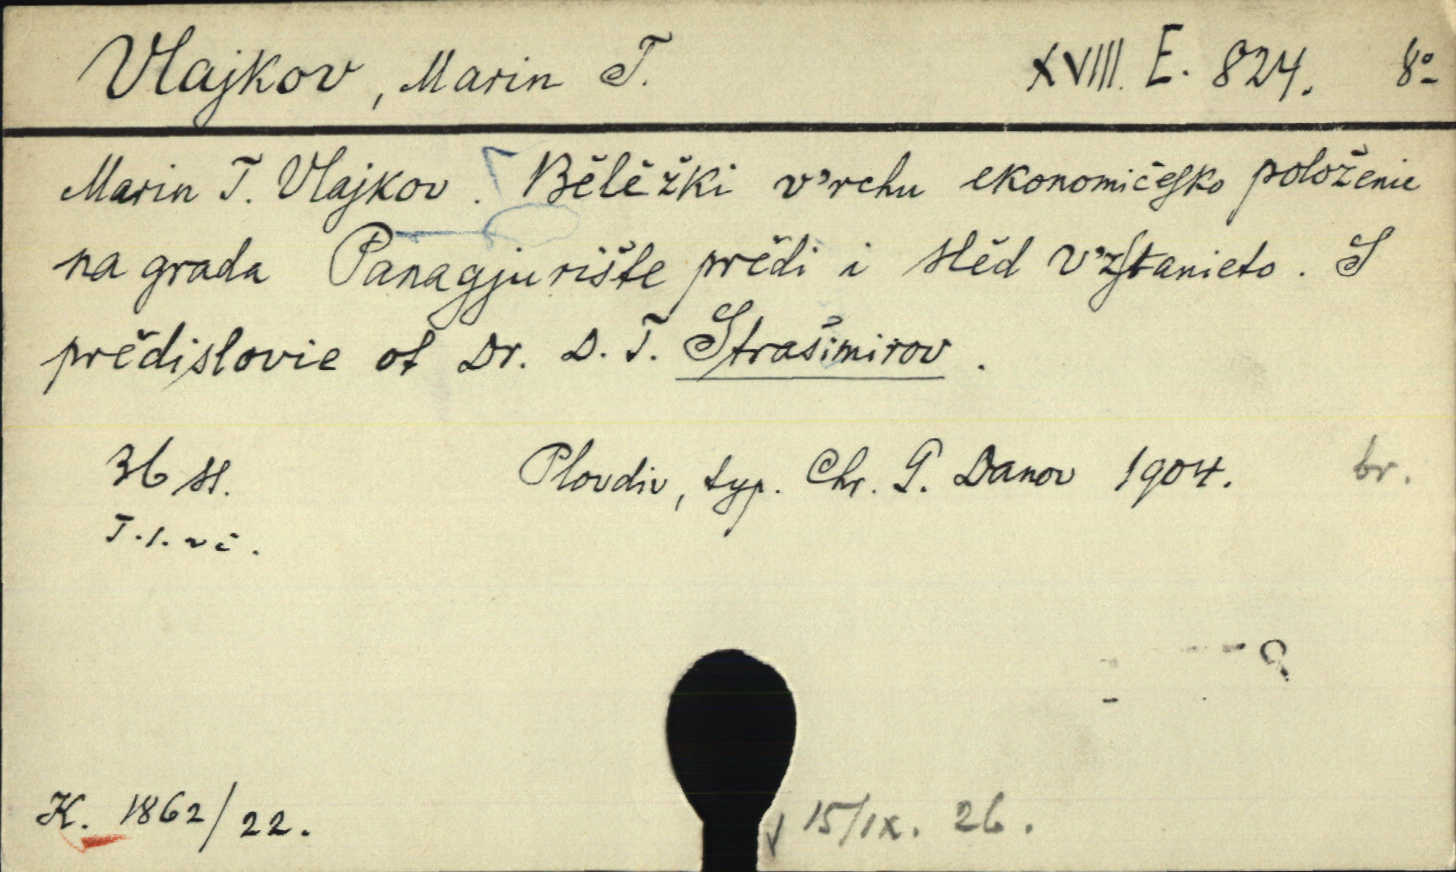 Vlajkov, Marin T. XVIII. E. 824. 8º
Marin T. Vlajkov. Bělěžki v'rchu ekonomičesko položenie
na grada Panagjurište prědi i slěd v'zstanieto. S
prědislovie ot Dr. D. T. Strašimirov.
36 st. Plovdiv, typ. Chr. G. Danov 1904. br.
T.1. vč.
K. 1862/22. 15/IX. 26.